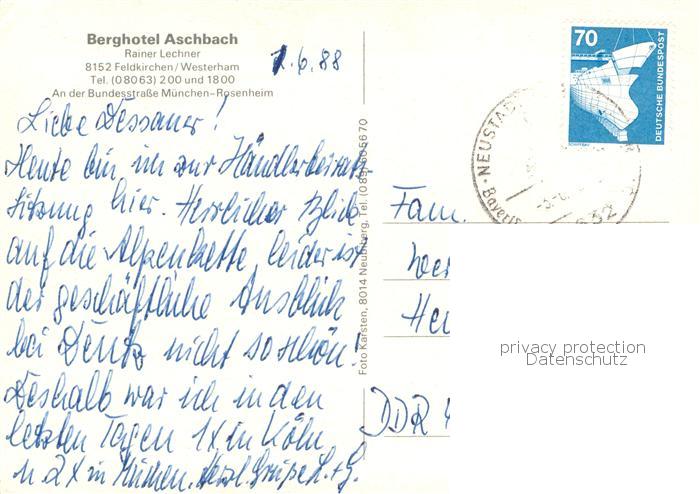 Berghotel Aschbach
Rainer Lechner
8152 Feldkirchen/Westerham
Tel. (08063) 200 und 1800
An der Bundesstraße München-Rosenheim
1.6.88
Liebe Dessauer!
Heute bin ich zur Händlerbeirats
sitzung hier. Herrlicher Blick
auf die Alpenkette, leider ist
der geschäftliche Ausblick
bei Deutz nicht so schön!
Deshalb war ich in den
letzten Tagen 1x in Köln
u. 2x in München. Herzl. Grüße L. + G.
Foto Karsten, 8014 Neubiberg, Tel. (089)
70
DEUTSCHE BUNDESPOST
NEUSTADT
Bayern
Fam.
Wer
Her
DDR 4
privacy protection
Datenschutz